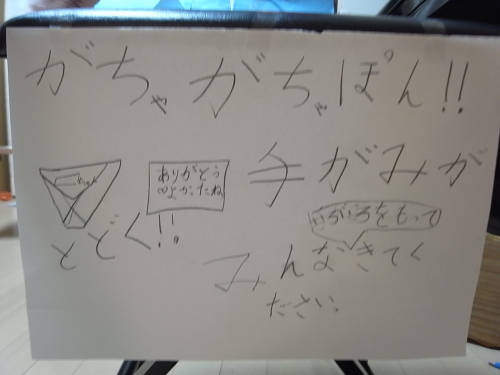 がちゃがちゃぽん!!
手がみが
ありがとう
∞よかったね
とどく!!
いがいろをもって
みんなきてく
ださい